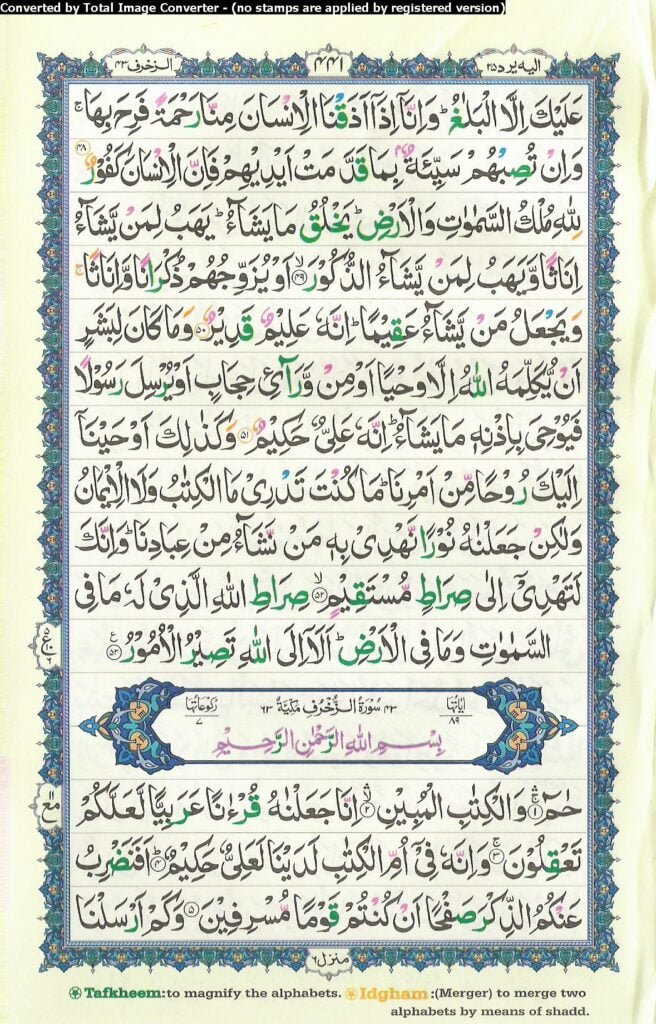 Converted by Total Image Converter - (no stamps are applied by registered version)
الزخرف ٤٣
٤٤١
اليه يرد ٢٥
عَلَيْكَ اِلَّا الْبَلٰغُ ؕ وَاِنَّاۤ اِذَاۤ اَذَقْنَا الْاِنْسَانَ مِنَّا رَحْمَةً فَرِحَ بِهَا ۚ
وَاِنْ تُصِبْهُمْ سَيِّئَةٌۢ بِمَا قَدَّمَتْ اَيْدِيْهِمْ فَاِنَّ الْاِنْسَانَ كَفُوْرٌ ۴۸
لِلّٰهِ مُلْكُ السَّمٰوٰتِ وَالْاَرْضِ ؕ يَخْلُقُ مَا يَشَآءُ ؕ يَهَبُ لِمَنْ يَّشَآءُ
اِنَاثًا وَّيَهَبُ لِمَنْ يَّشَآءُ الذُّكُوْرَ ۙ ۴۹ اَوْ يُزَوِّجُهُمْ ذُكْرَانًا وَّاِنَاثًا ۚ
وَيَجْعَلُ مَنْ يَّشَآءُ عَقِيْمًا ؕ اِنَّهٗ عَلِيْمٌ قَدِيْرٌ ۵۰ وَمَا كَانَ لِبَشَرٍ
اَنْ يُّكَلِّمَهُ اللّٰهُ اِلَّا وَحْيًا اَوْ مِنْ وَّرَآئِ حِجَابٍ اَوْ يُرْسِلَ رَسُوْلًا
فَيُوْحِيَ بِاِذْنِهٖ مَا يَشَآءُ ؕ اِنَّهٗ عَلِيٌّ حَكِيْمٌ ۵۱ وَكَذٰلِكَ اَوْحَيْنَاۤ
اِلَيْكَ رُوْحًا مِّنْ اَمْرِنَا ؕ مَا كُنْتَ تَدْرِيْ مَا الْكِتٰبُ وَلَا الْاِيْمَانُ
وَلٰكِنْ جَعَلْنٰهُ نُوْرًا نَّهْدِيْ بِهٖ مَنْ نَّشَآءُ مِنْ عِبَادِنَا ؕ وَاِنَّكَ
لَتَهْدِيْۤ اِلٰى صِرَاطٍ مُّسْتَقِيْمٍ ۙ ۵۲ صِرَاطِ اللّٰهِ الَّذِيْ لَهٗ مَا فِي
السَّمٰوٰتِ وَمَا فِي الْاَرْضِ ؕ اَلَاۤ اِلَى اللّٰهِ تَصِيْرُ الْاُمُوْرُ ۵۳ ع
۵ ع ۶
اٰيَاتُهَا ۸۹
۴۳ سُوْرَةُ الزُّخْرُفِ مَكِّيَّةٌ ۶۳
رُكُوْعَاتُهَا ۷
بِسْمِ اللّٰهِ الرَّحْمٰنِ الرَّحِيْمِ
حٰمٓ ۱ وَالْكِتٰبِ الْمُبِيْنِ ۲ اِنَّا جَعَلْنٰهُ قُرْءٰنًا عَرَبِيًّا لَّعَلَّكُمْ
تَعْقِلُوْنَ ۚ ۳ وَاِنَّهٗ فِيْۤ اُمِّ الْكِتٰبِ لَدَيْنَا لَعَلِيٌّ حَكِيْمٌ ؕ ۴ اَفَنَضْرِبُ
عَنْكُمُ الذِّكْرَ صَفْحًا اَنْ كُنْتُمْ قَوْمًا مُّسْرِفِيْنَ ۵ وَكَمْ اَرْسَلْنَا
منزل ۶
Tafkheem:to magnify the alphabets. Idgham :(Merger) to merge two
alphabets by means of shadd.